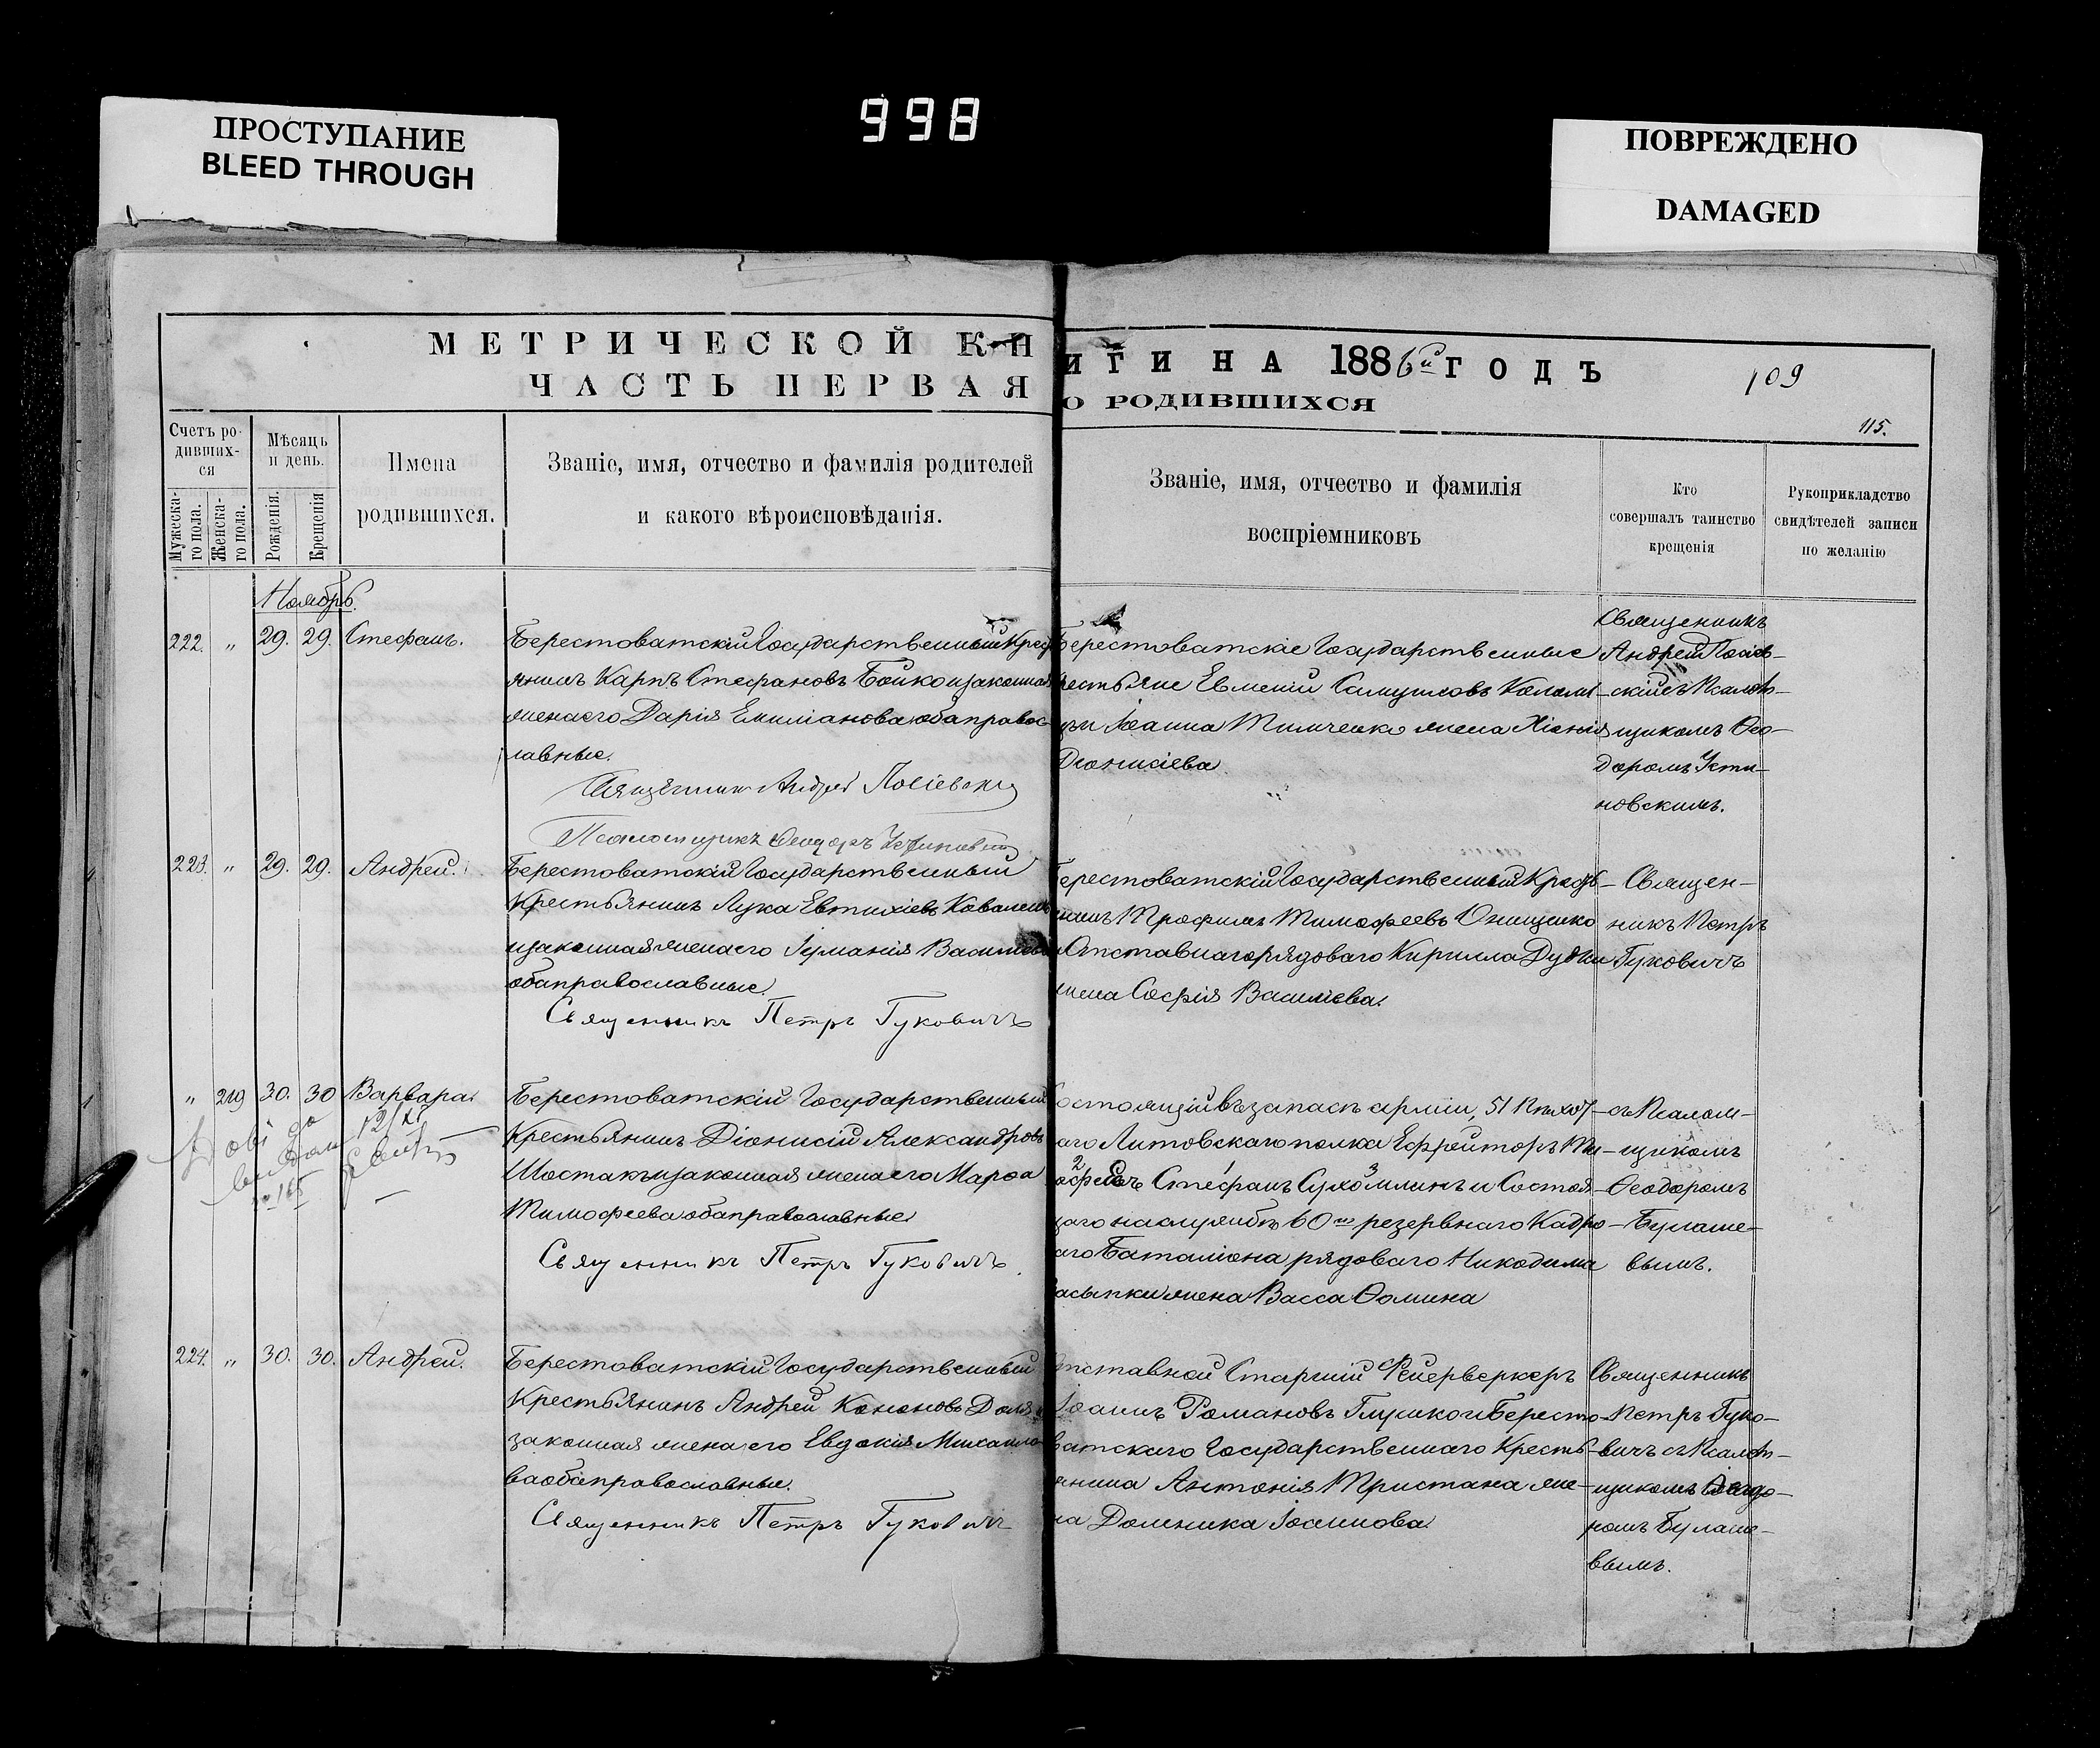 ПРОСТУПАНИЕ
BLEED THROUGH
998
ПОВРЕЖДЕНО
DAMAGED
МЕТРИЧЕСКОЙ КН
ЧАСТЬ ПЕРВАЯ
ИГИ НА 1886й ГОДЪ
О РОДИВШИХСЯ
109
115.
Счетъ ро-
дивших-
ся
Мужеска-
го пола.
Женска-
го пола.
Мѣсяць
и день.
Рожденія.
Крещенія
Имена
родившихся.
Званіе, имя, отчество и фамилія родителей
и какого вѣроисповѣданія.
Званіе, имя, отчество и фамилія
воспріемниковъ
Кто
совершалъ таинство
крещенія
Рукоприкладство
свидѣтелей записи
по желанію
Ноябрь.
222. „ 29. 29. Стефанъ.
Берестоватскій Государственный Крес
янинъ Карпъ Стефановъ Бойко и законная
жена его Дарія Емиліанова оба правос-
лавные.
Священникъ Андрей Посіевскій
Псаломщикъ Феодоръ Устиновскій
Берестоватскіе Государственные
рестьяне Евменій Самуиловъ
Іоанна Тимченко жена Ксенія
Діонисіева
Священникъ
Андрей Посіев-
скій съ Псалом-
щикомъ Ѳео-
доромъ Усти-
новскимъ.
223. „ 29. 29. Андрей.
Берестоватскій Государственный
Крестьянинъ Лука Евтихіевъ
и законная жена его Іуліанія
оба православные.
Священникъ Петръ Гуковичъ
ерестоватскій Государственный Кресть-
нинъ Трофимъ Тимофеевъ Онищенко
и Отставнаго рядоваго Кирилла Дудки
жена Софія Василіева.
Священ-
никъ Петръ
Гуковичъ
„ 219 30. 30 Варвара.
№ 165
Берестоватскій Государственный
Крестьянинъ Діонисій Александровъ
Шостакъ и законная жена его Марфа
Тимофеева оба православные.
Священникъ Петръ Гуковичъ.
остоящій въ запасѣ арміи, 51 Пѣхот-
аго Литовскаго полка Ефрейторъ Ти-
офеевъ Стефанъ Сухомлинъ и Состоя-
щаго на службѣ 60го резервнаго Кадро-
аго Баталіона рядоваго Никодима
асыпки жена Васса Ѳомина
съ Псалом-
щикомъ
Ѳеодоромъ
Булаше-
вымъ.
224. „ 30. 30. Андрей.
Берестоватскій Государственный
Крестьянинъ Андрей Кононовъ Доля и
законная жена его Евдокія Михаило-
ва оба православные.
Священникъ Петръ Гуковичъ
тставной Старшій Фейерверкеръ
Іоаннъ Романовъ Глушко и Бересто-
ватскаго Государственнаго Кресть-
янина Антонія Тристана же-
на Домника Іоаннова.
Священникъ
Петръ Гуко-
вичъ съ Псалом-
щикомъ Ѳеодо-
ромъ Булаше-
вымъ.